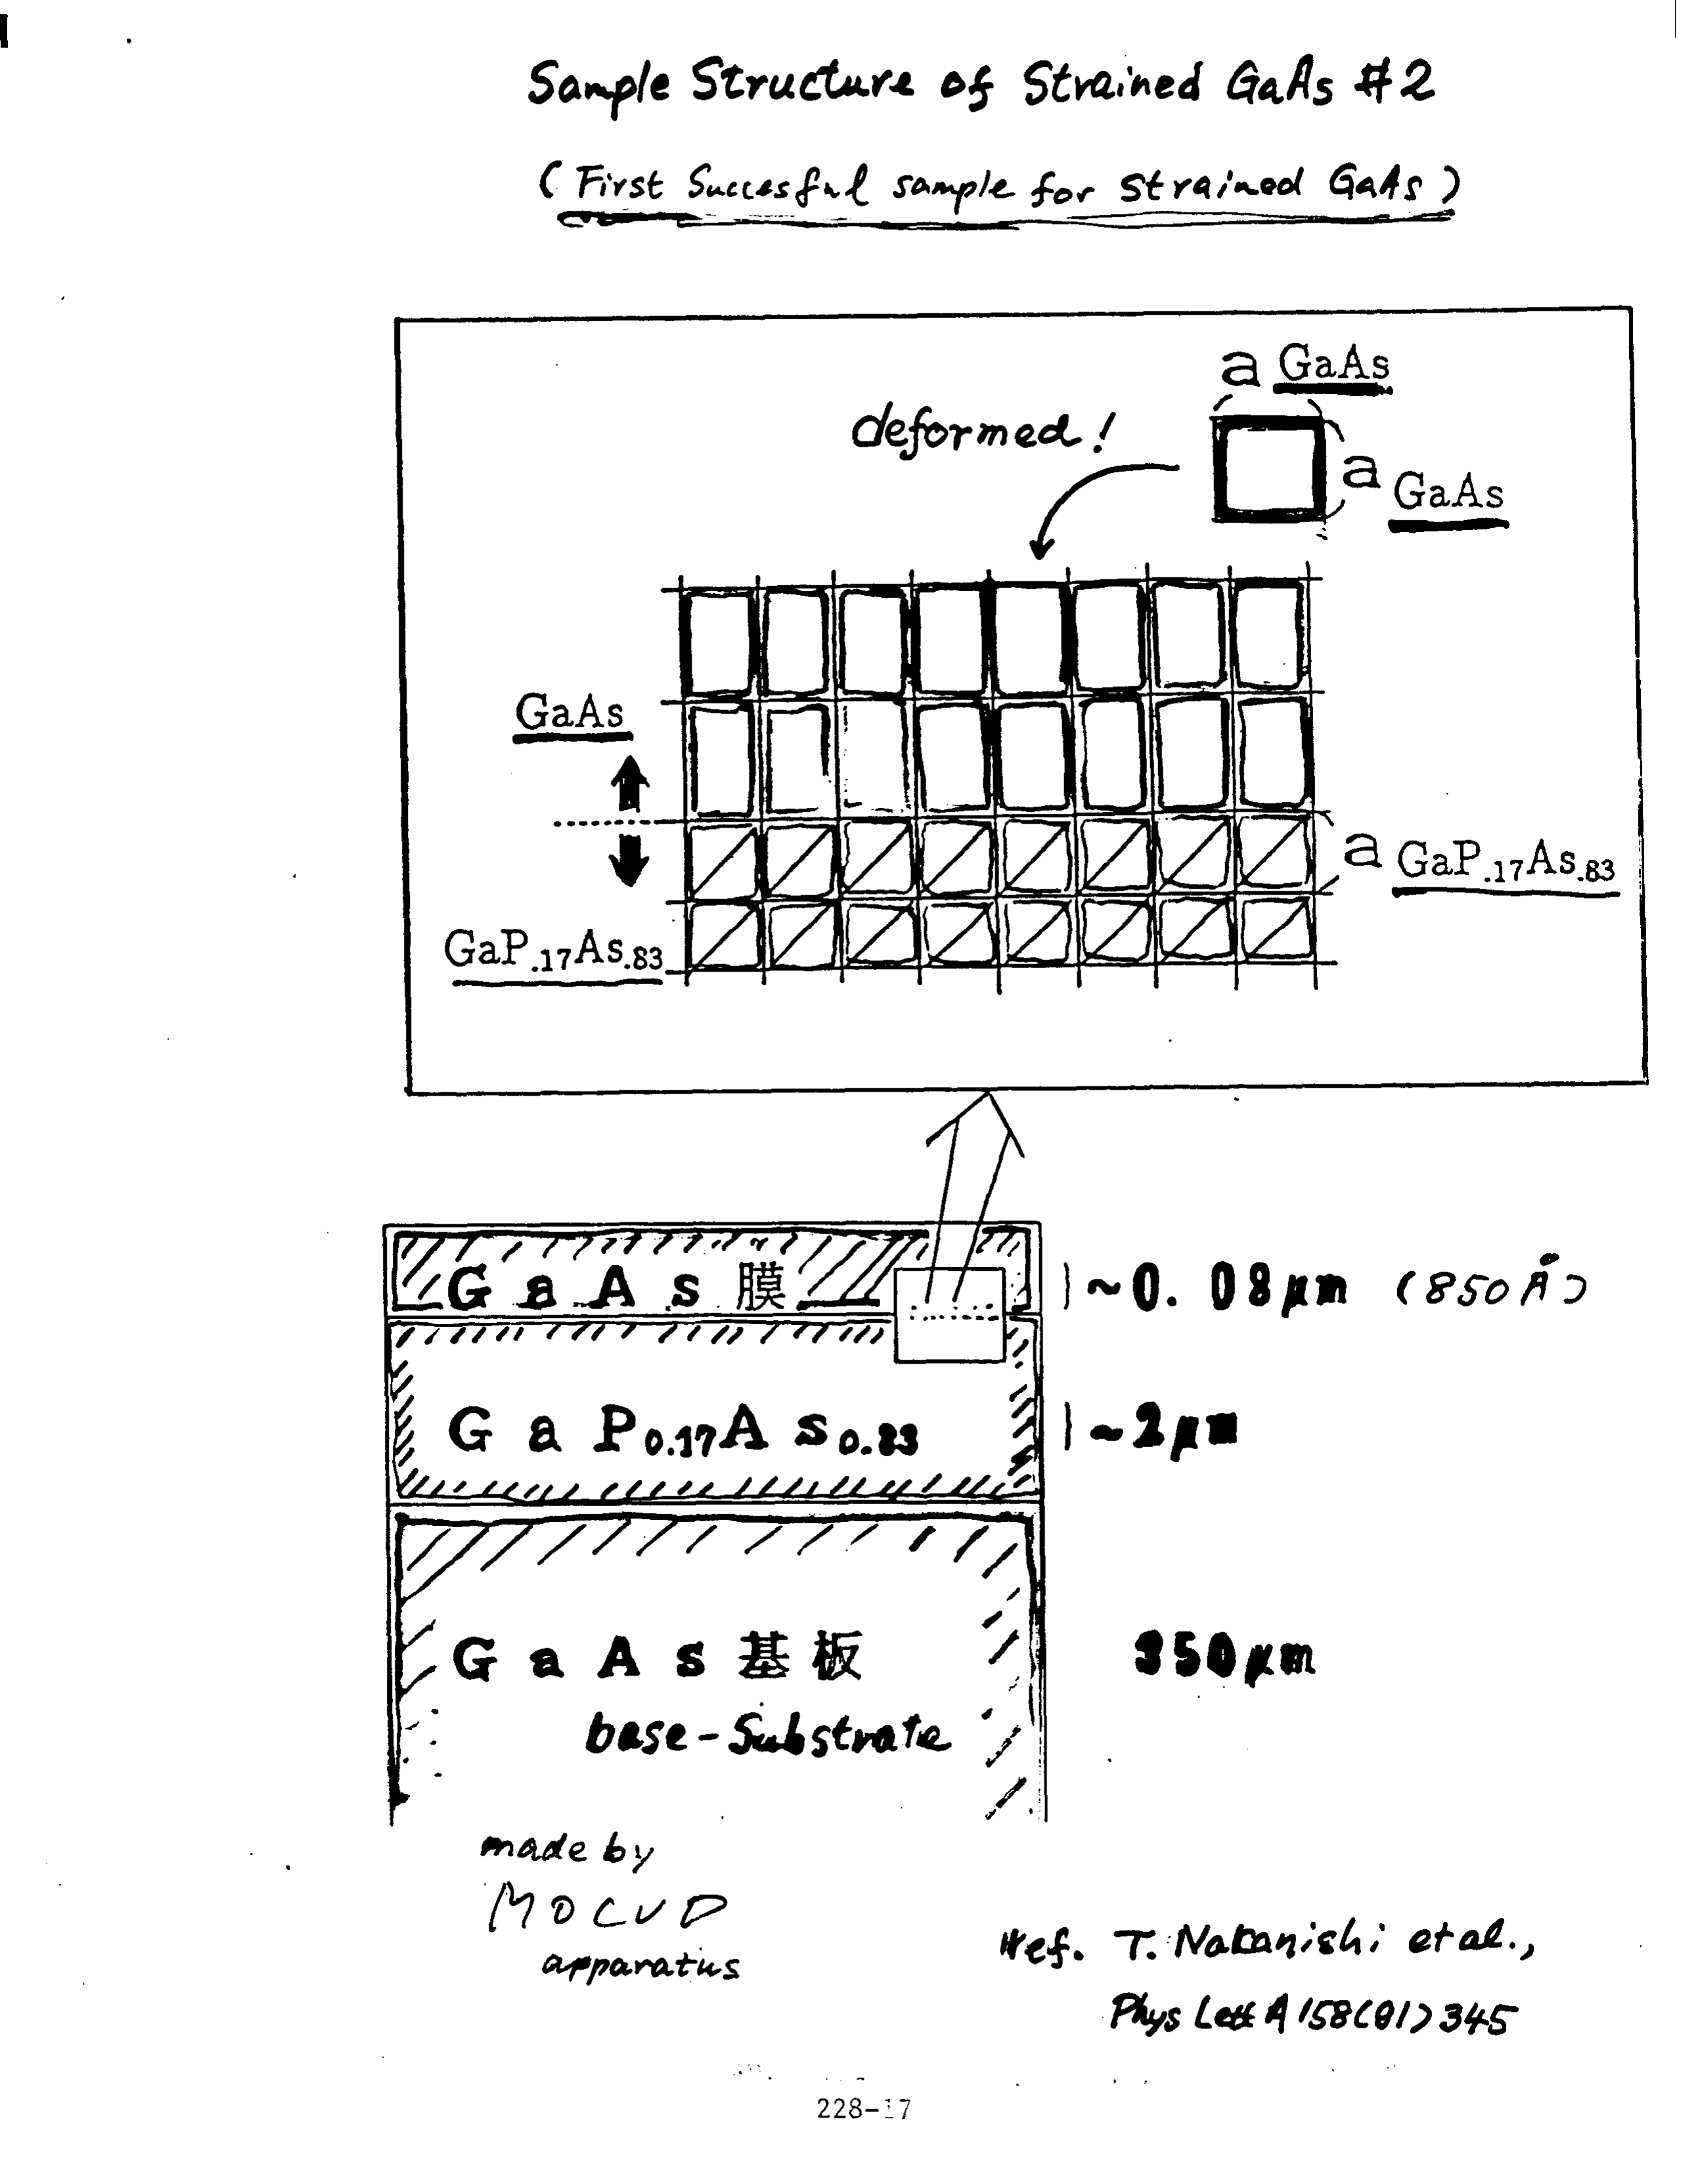 Sample Structure of Strained GaAs #2
(First Succesful sample for strained GaAs)
a GaAs
deformed!
a GaAs
GaAs
a GaP.17As.83
GaP.17As.83
GaAs膜
~0.08μm (850Å)
GaP0.17As0.83
~2μm
GaAs基板
350μm
base-Substrate
made by
MOCVD
apparatus
Ref. T. Nakanishi et al.,
Phys Lett A 158(91)345
228-17